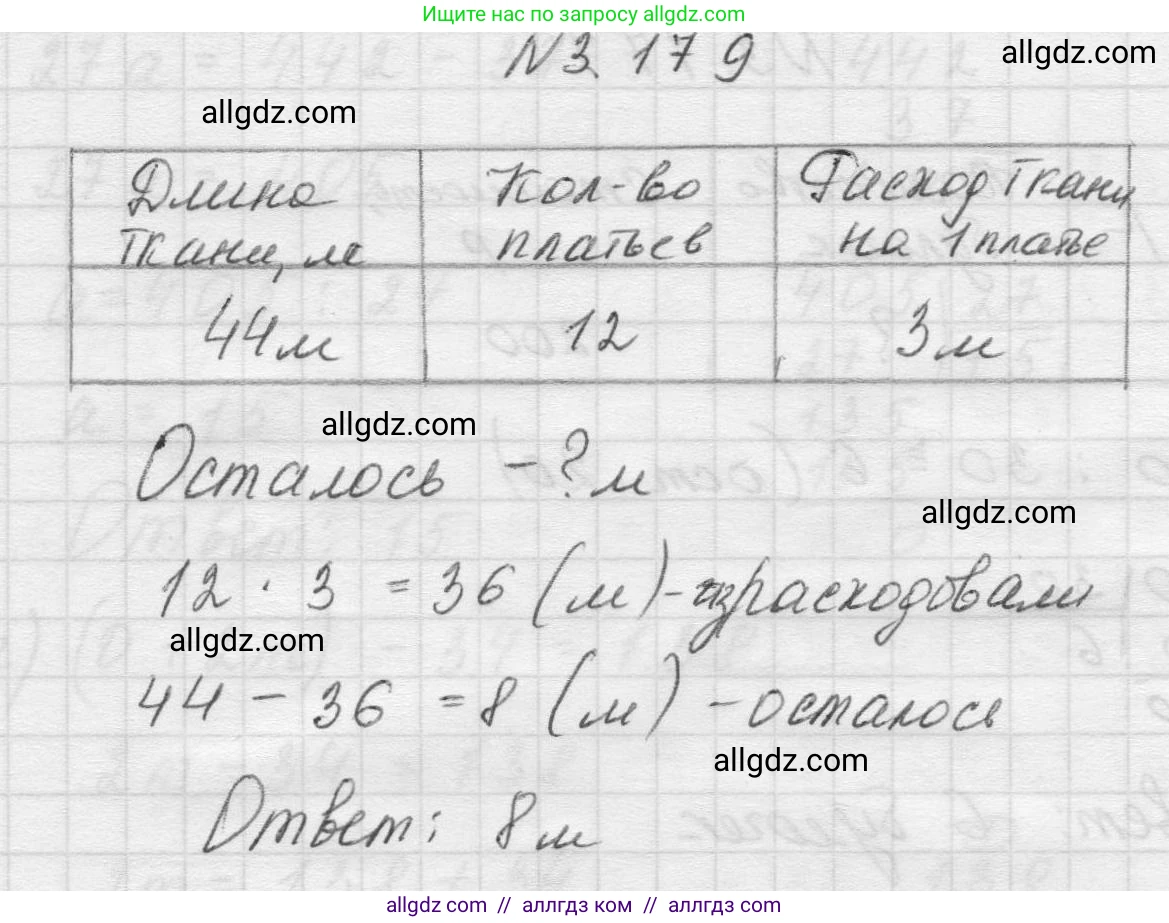 Ищите нас по запросу allgdz.com
N 3. 179
allgdz.com
allgdz.com
Длина ткани, м
Кол-во платьев
Расход ткани на 1 платье
44м
12
3м
allgdz.com
Осталось - ? м
allgdz.com
12 · 3 = 36 (м) - израсходовали
allgdz.com
44 - 36 = 8 (м) - осталось
allgdz.com
Ответ: 8м
allgdz.com // аллгдз ком // аллгдз.com